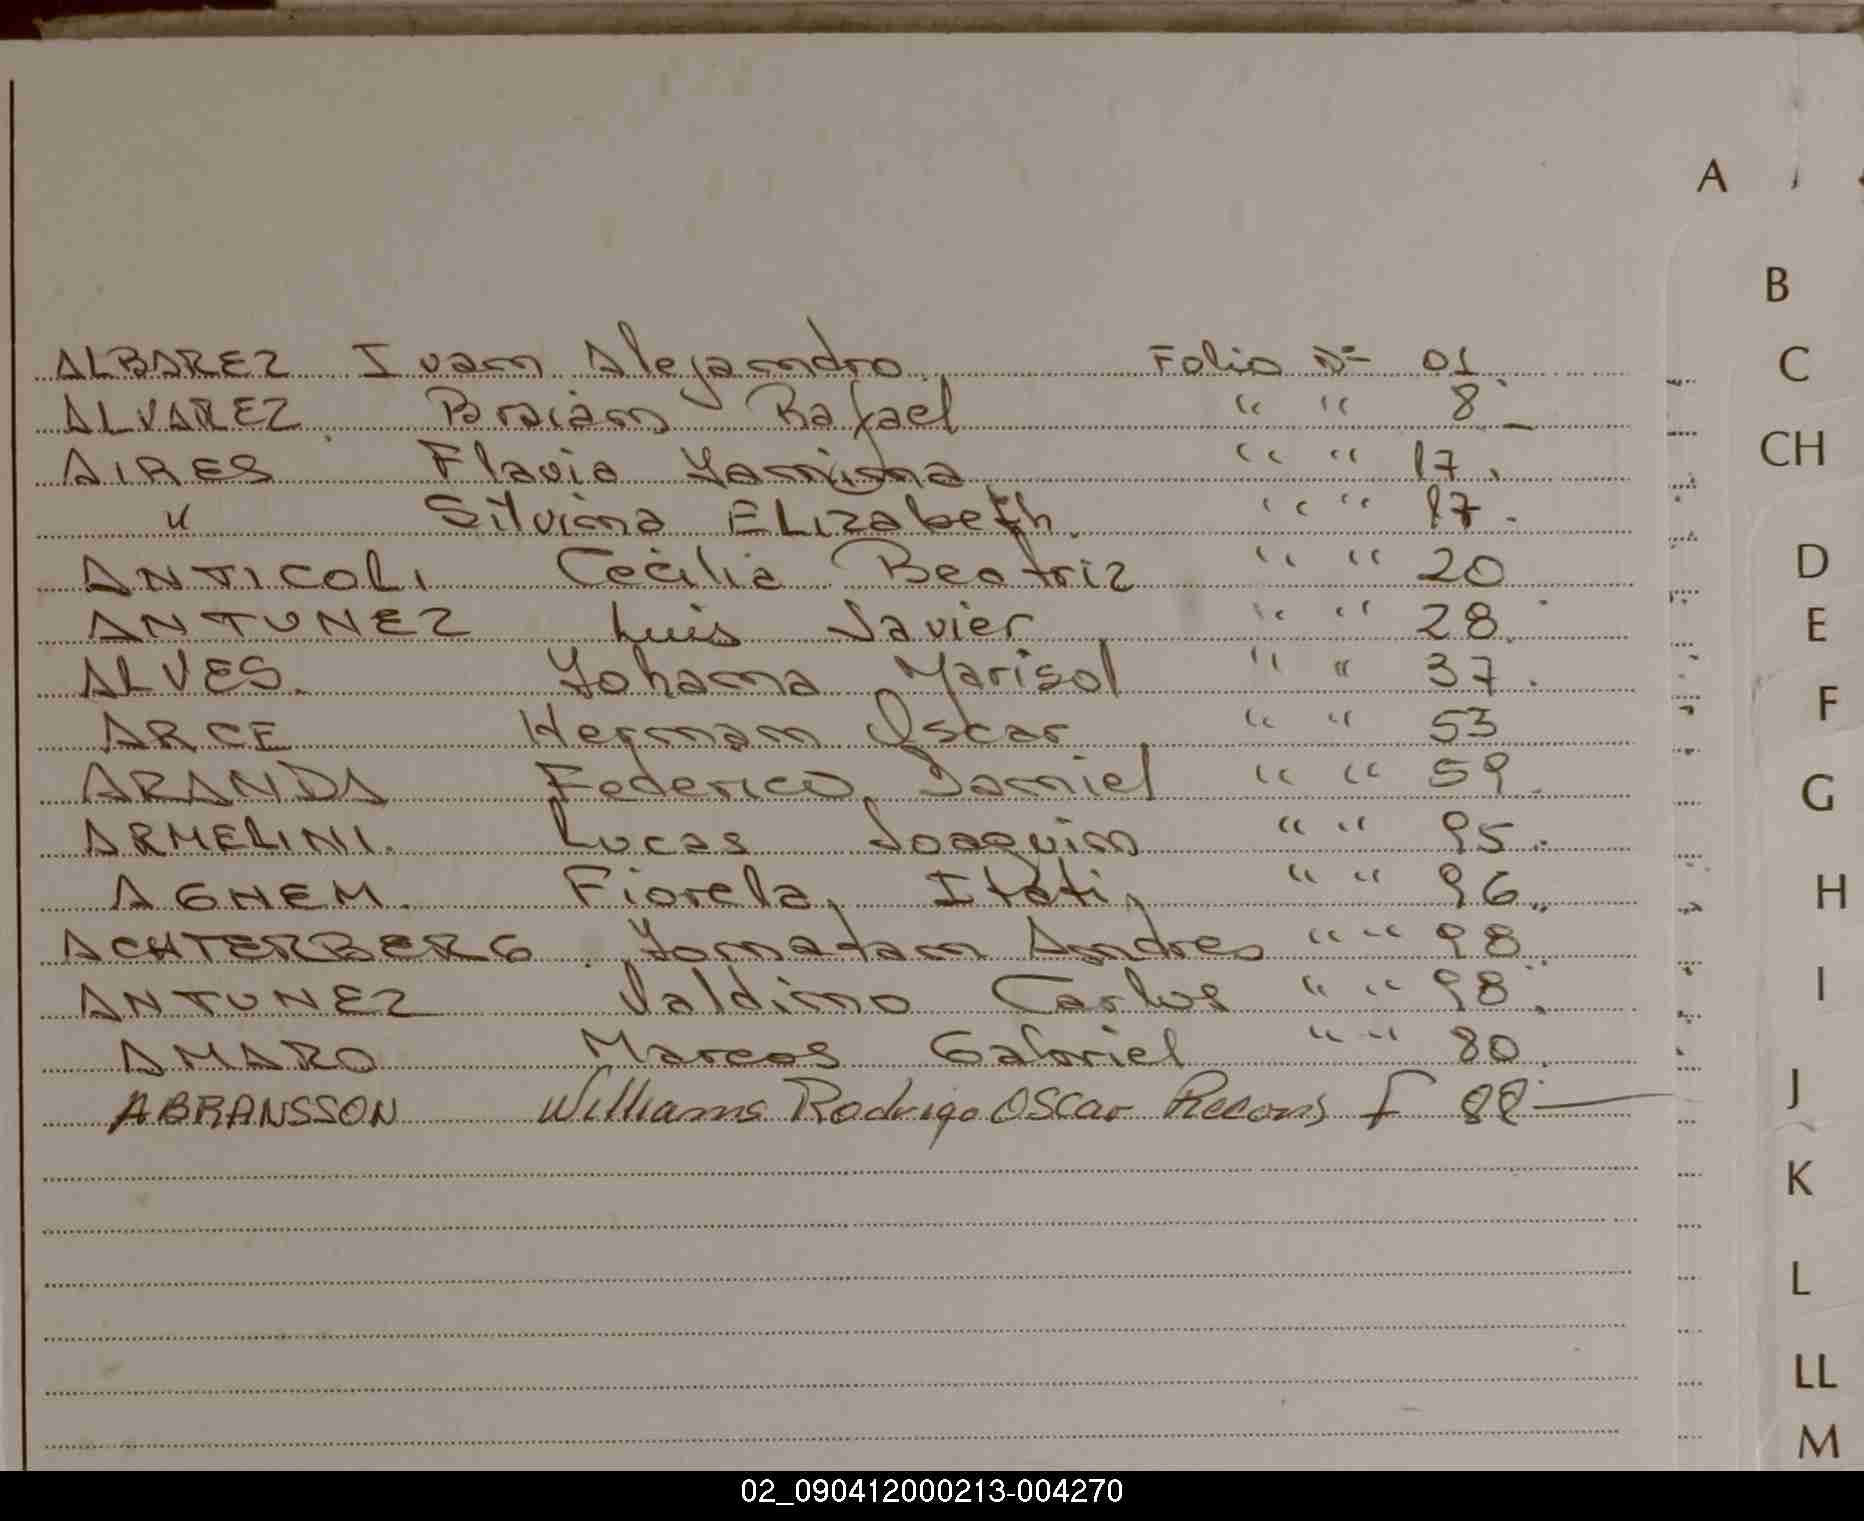 A
B
ALBAREZ Ivan Alejandro Folio Nº 01
C
ALVAREZ Braian Rafael " " 8
AIRES Flavia Yamina " " 17.
CH
" Silvina ELIzabeth " " 17.
ANTICOLI Cecilia Beatriz " " 20
D
ANTUNEZ Luis Javier " " 28.
E
ALVES. Yohana Marisol " " 37.
F
ARCE Hernan Oscar " " 53
ARANDA Federico Daniel " " 59.
G
ARMELINI. Lucas Joaquin " " 95.
AGNEM. Fiorela Itati " " 96
H
ACHTERBERG Yonatan Andres " " 98
ANTUNEZ Valdino Carlos " " 98.
I
AMARO Marcos Gabriel " " 80.
ABRANSSON Williams Rodrigo OSCar f 88
J
K
L
LL
M
02_090412000213-004270